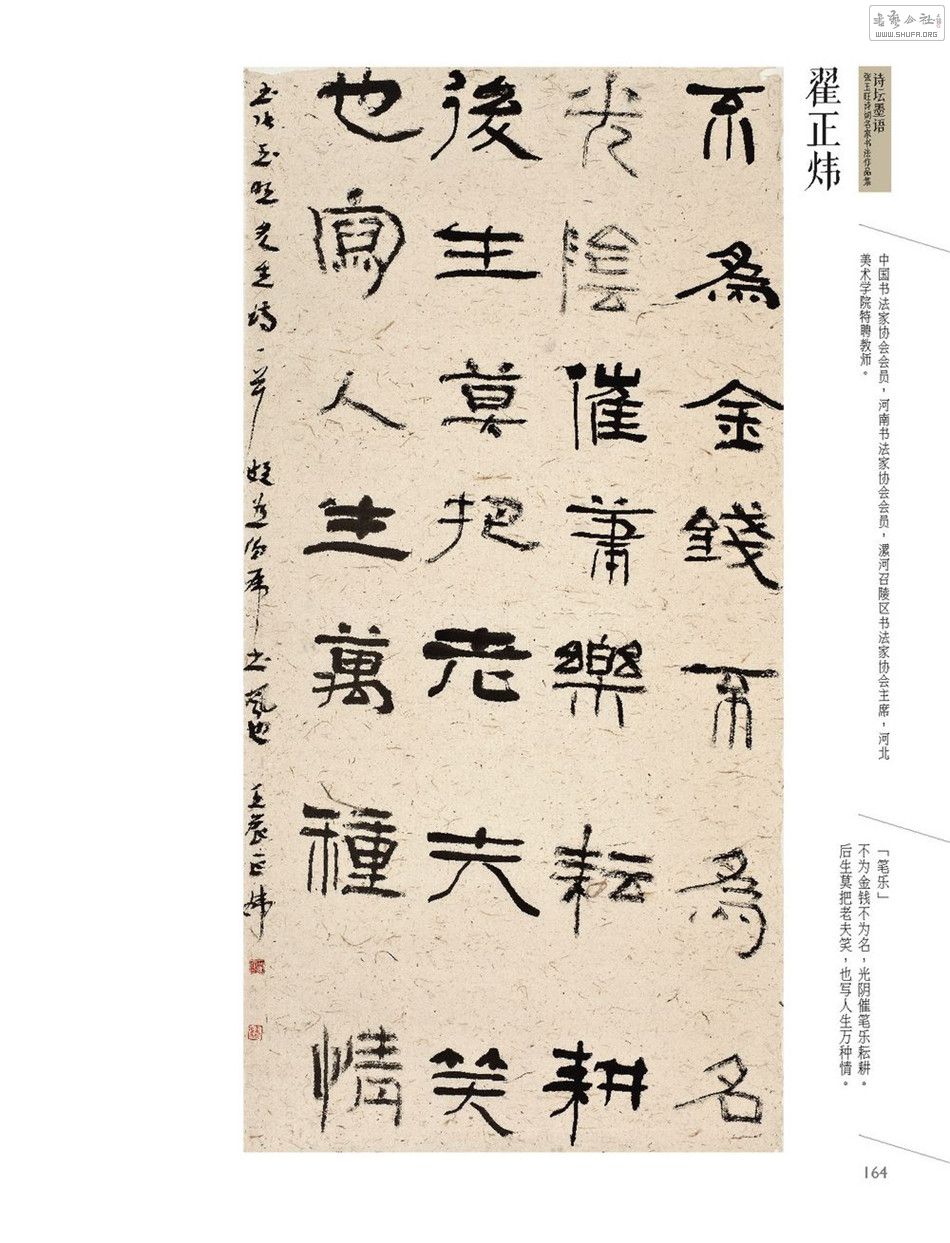 书艺公社
WWW.SHUFA.ORG
诗坛墨语
张玉旺诗词名家书法作品集
翟正炜
中国书法家协会会员，河南书法家协会会员，漯河召陵区书法家协会主席，河北
美术学院特聘教师。
「笔乐」
不为金钱不为名，光阴催笔乐耘耕。
后生莫把老夫笑，也写人生万种情。
不為金錢不為名
光陰催筆樂耘耕
後生莫把老夫笑
也寫人生萬種情
书张玉旺先生诗一首
正炜
164